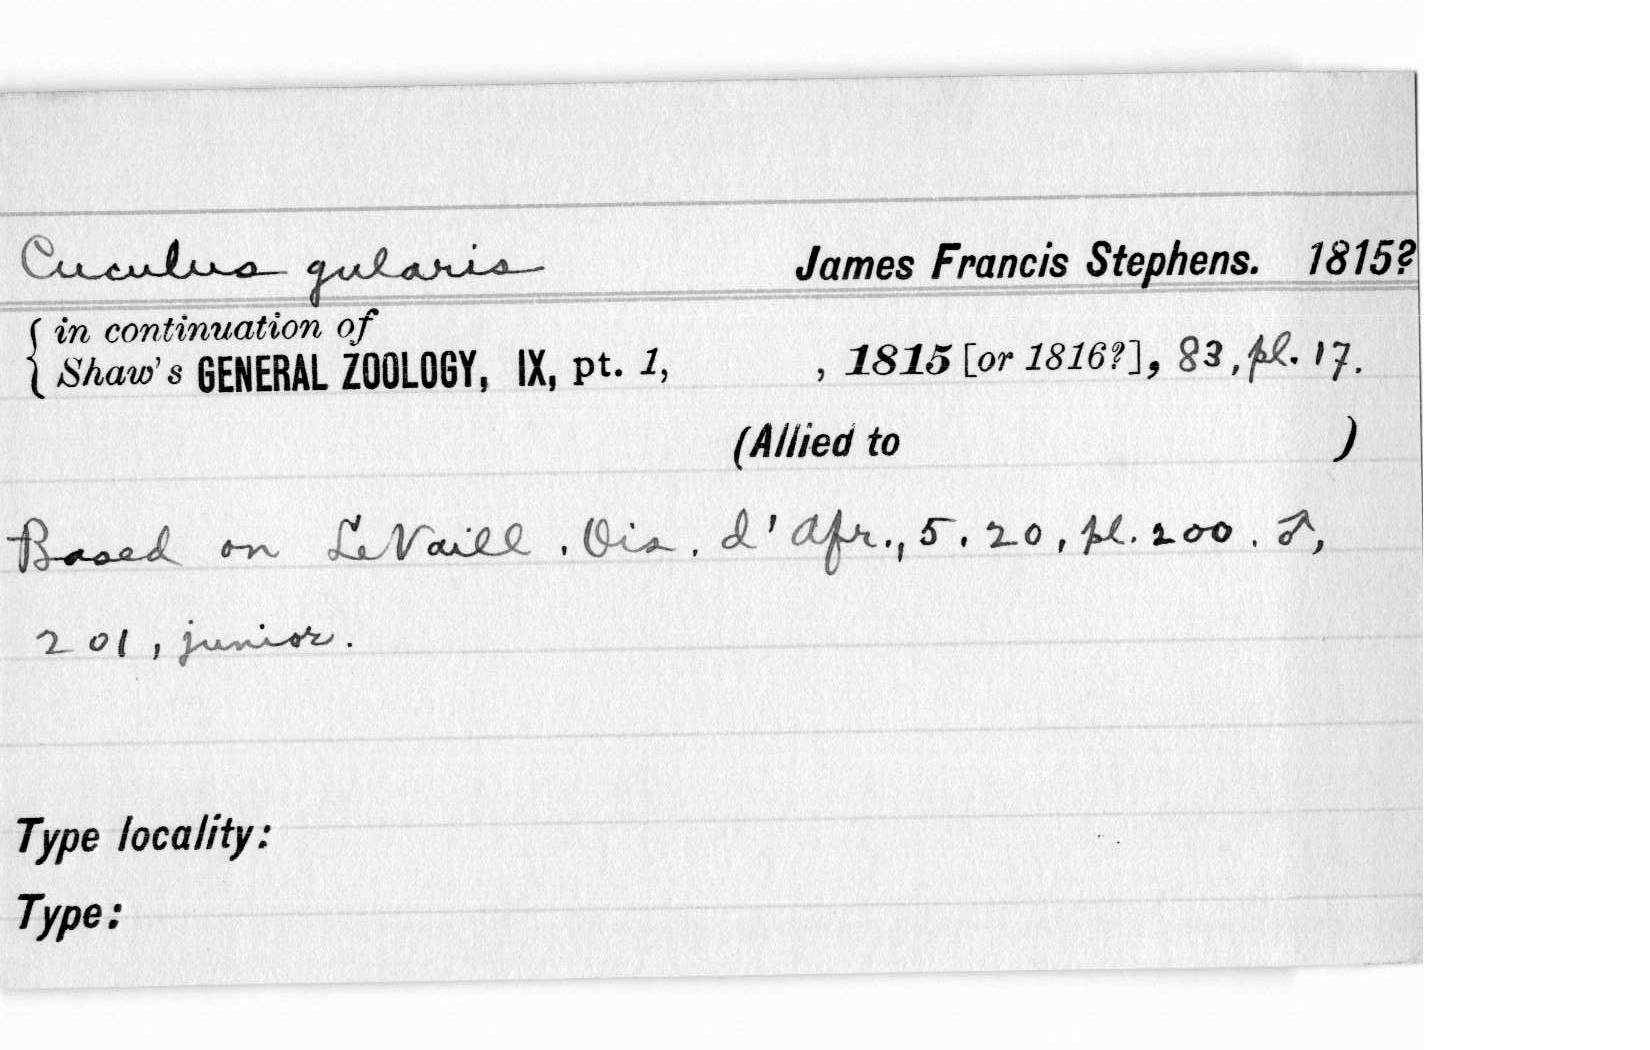 Cuculus gularis James Francis Stephens. 1815?
{ in continuation of
Shaw's GENERAL ZOOLOGY, IX, pt. 1, , 1815 [or 1816?], 83, pl. 17.
(Allied to )
Based on LeVaill. Ois. d'Afr., 5. 20, pl. 200. ♂,
201, junior.
Type locality:
Type: